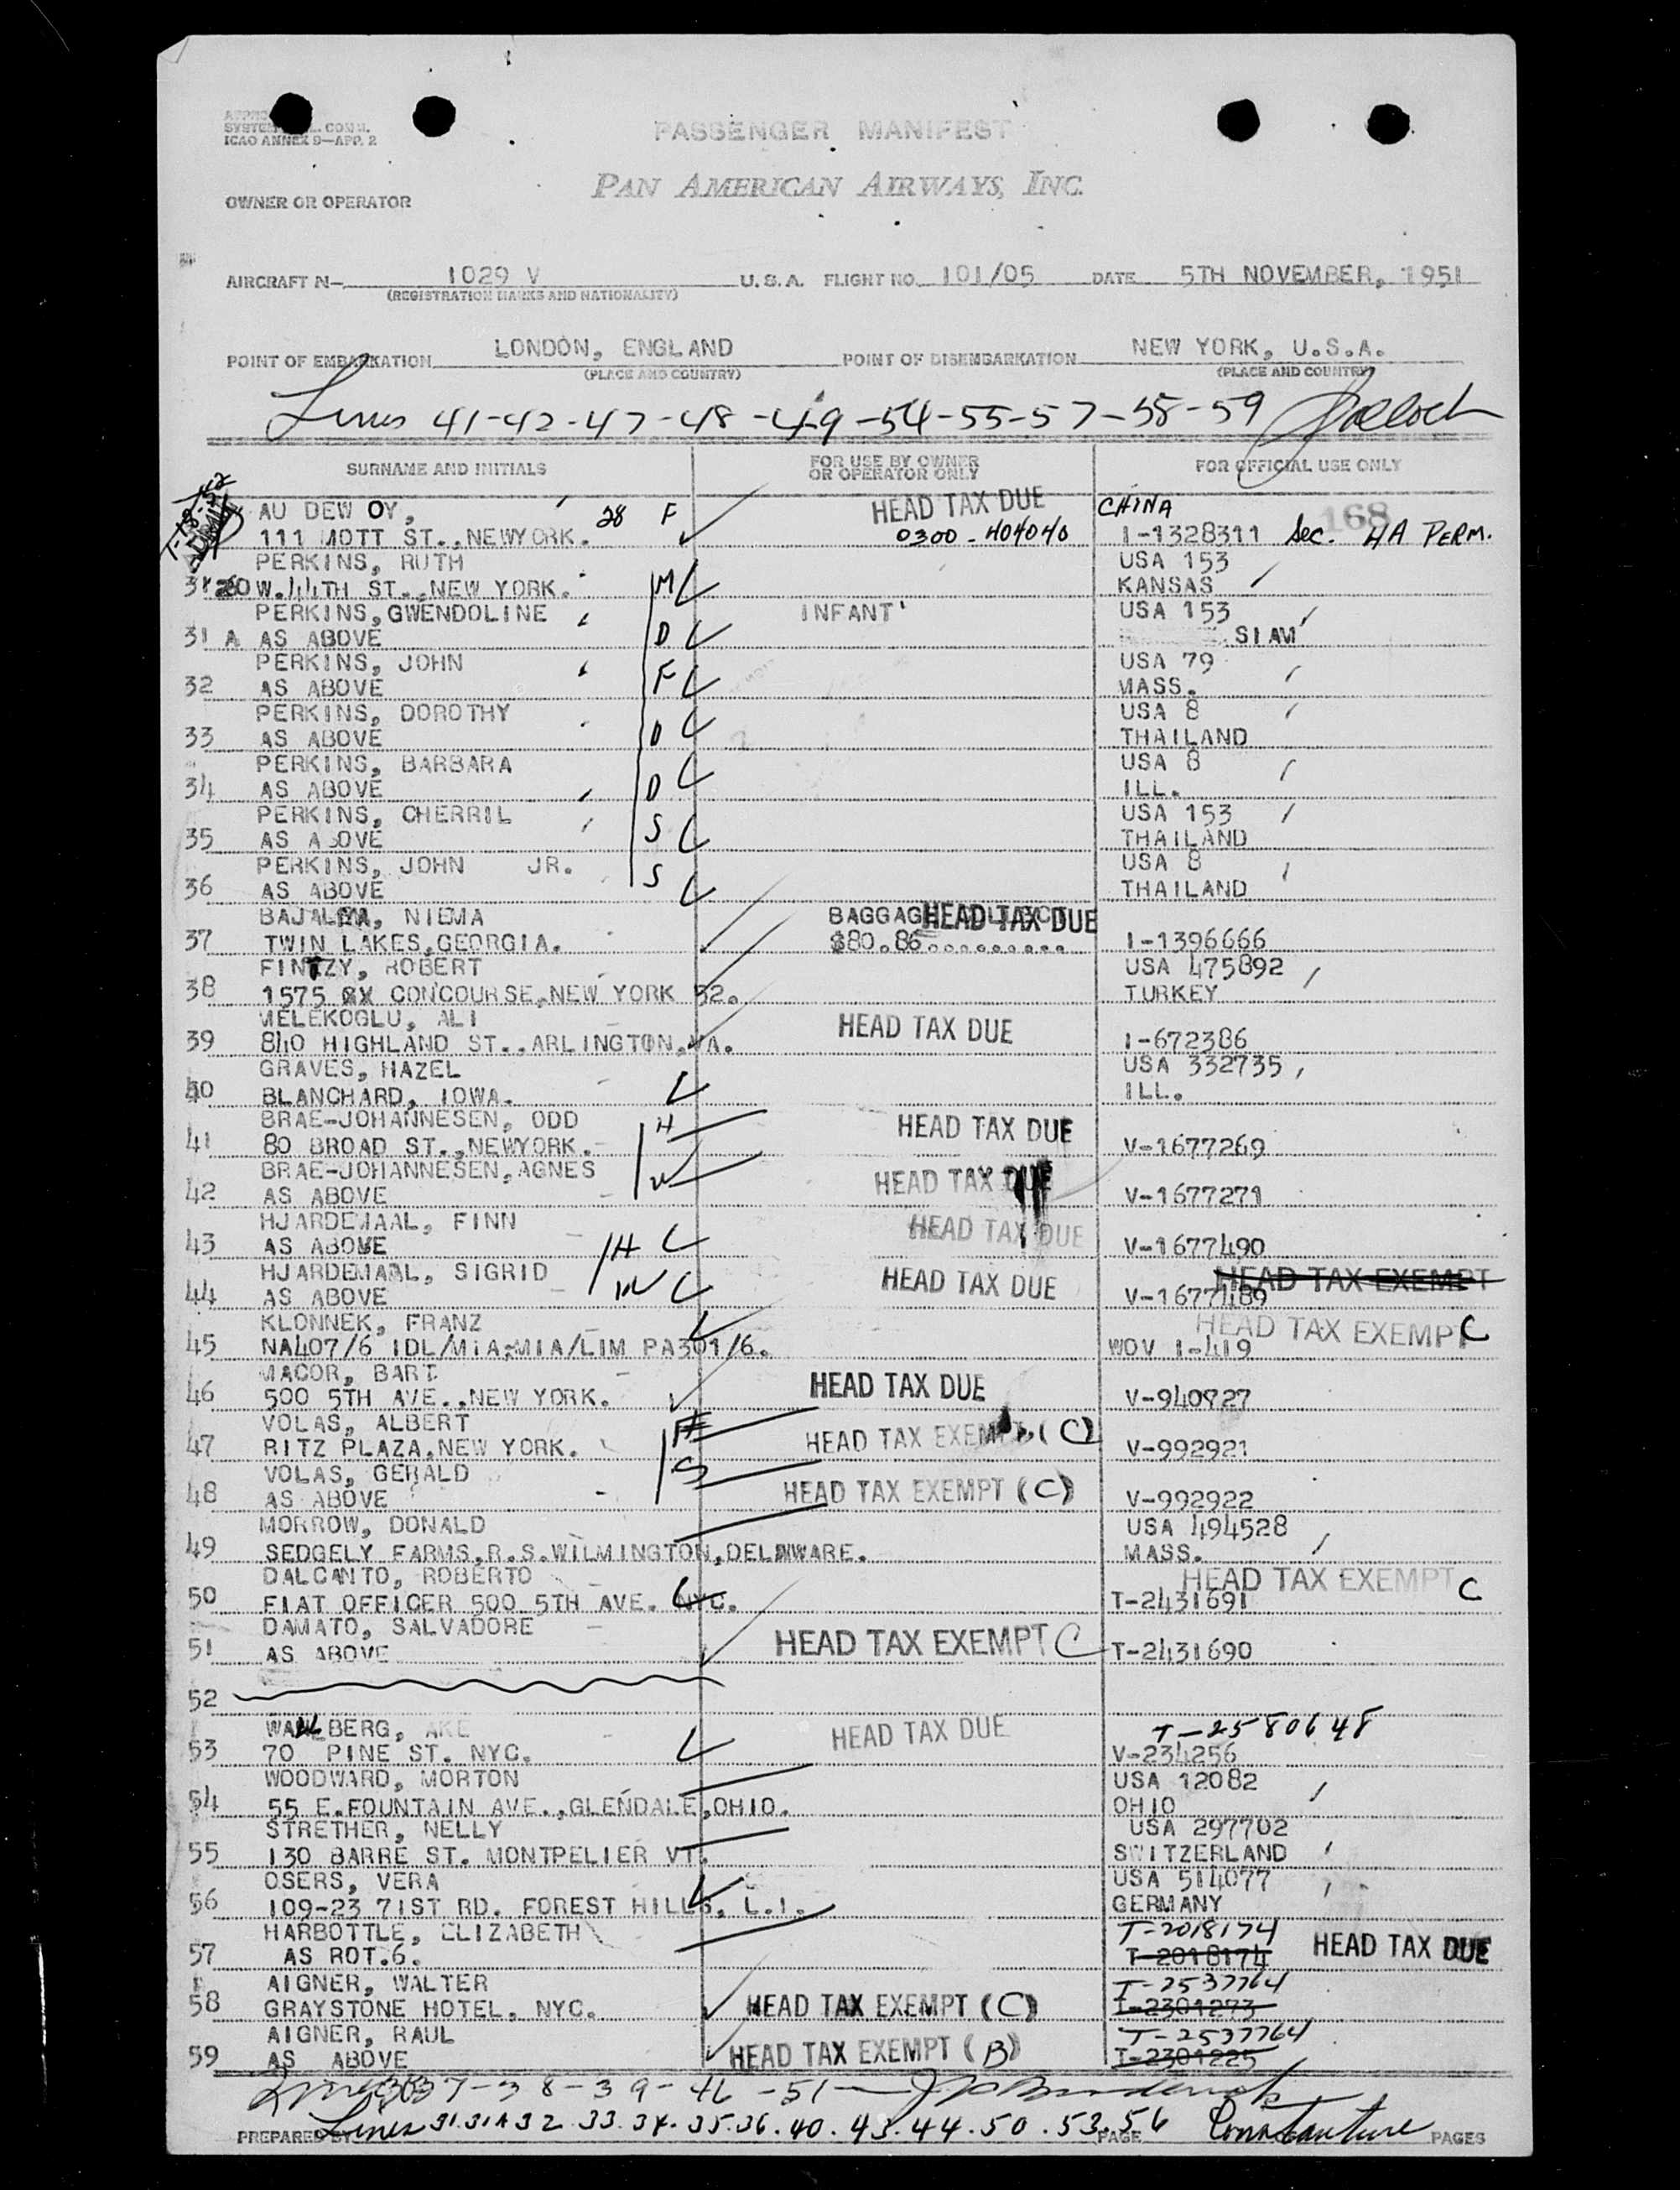 ICAO ANNEX 9—APP. 2
PASSENGER MANIFEST
PAN AMERICAN AIRWAYS, INC.
OWNER OR OPERATOR
AIRCRAFT N— 1029 V U.S.A. FLIGHT NO. 101/05 DATE 5TH NOVEMBER, 1951
(REGISTRATION MARKS AND NATIONALITY)
POINT OF EMBARKATION LONDON, ENGLAND POINT OF DISEMBARKATION NEW YORK, U.S.A.
(PLACE AND COUNTRY) (PLACE AND COUNTRY)
Lines 41-42-47-48-49-54-55-57-58-59
SURNAME AND INITIALS FOR USE BY OWNER OR OPERATOR ONLY FOR OFFICIAL USE ONLY
AU DEW OY, 28 F HEAD TAX DUE CHINA 168
111 MOTT ST.,NEWYORK. 0300-404040 I-1328311 Sec. 4A PERM.
PERKINS, RUTH USA 153
31 20 W.44TH ST.,NEW YORK. M KANSAS
PERKINS,GWENDOLINE INFANT USA 153
31 A AS ABOVE D SIAM
PERKINS, JOHN USA 79
32 AS ABOVE F MASS.
PERKINS, DOROTHY USA 8
33 AS ABOVE D THAILAND
PERKINS, BARBARA USA 8
34 AS ABOVE D ILL.
PERKINS, CHERRIL USA 153
35 AS ABOVE S THAILAND
PERKINS, JOHN JR. USA 8
36 AS ABOVE S THAILAND
NIEMA HEAD TAX DUE
37 TWIN LAKES,GEORGIA. $80.86.......... I-1396666
FINTZY, ROBERT USA 475892
38 1575 GX CONCOURSE,NEW YORK 52. TURKEY
MELEKOGLU, ALI HEAD TAX DUE
39 840 HIGHLAND ST.,ARLINGTON,VA. I-672386
GRAVES, HAZEL USA 332735
40 BLANCHARD, IOWA. ILL.
BRAE-JOHANNESEN, ODD H HEAD TAX DUE
41 80 BROAD ST.,NEWYORK. V-1677269
BRAE-JOHANNESEN,AGNES W HEAD TAX DUE
42 AS ABOVE V-1677271
HJARDEMAAL, FINN HEAD TAX DUE
43 AS ABOVE H V-1677490
HJARDEMAAL, SIGRID HEAD TAX DUE HEAD TAX EXEMPT
44 AS ABOVE W V-1677489
KLONNEK, FRANZ HEAD TAX EXEMPT C
45 NA407/6 IDL/MIA;MIA/LIM PA301/6. WOV I-419
MACOR, BART HEAD TAX DUE
46 500 5TH AVE.,NEW YORK. V-940927
VOLAS, ALBERT F HEAD TAX EXEMPT (C)
47 RITZ PLAZA,NEW YORK. V-992921
VOLAS, GERALD S HEAD TAX EXEMPT (C)
48 AS ABOVE V-992922
MORROW, DONALD USA 494528
49 SEDGELY FARMS,R.S.WILMINGTON,DELAWARE. MASS.
DALCANTO, ROBERTO HEAD TAX EXEMPT C
50 FIAT OFFICER 500 5TH AVE. NYC. T-2431691
DAMATO, SALVADORE HEAD TAX EXEMPT C
51 AS ABOVE T-2431690
52
BERG, AKE HEAD TAX DUE T-2580648
53 70 PINE ST. NYC. V-234256
WOODWARD, MORTON USA 12082
54 55 E.FOUNTAIN AVE.,GLENDALE,OHIO. OHIO
STRETHER, NELLY USA 297702
55 130 BARRE ST. MONTPELIER VT. SWITZERLAND
OSERS, VERA USA 514077
56 109-23 71ST RD. FOREST HILLS, L.I. GERMANY
HARBOTTLE, ELIZABETH T-2018174
57 AS ROT.6. T-2018174 HEAD TAX DUE
AIGNER, WALTER T-2537764
58 GRAYSTONE HOTEL, NYC. HEAD TAX EXEMPT (C) T-2301273
AIGNER, RAUL T-2537764
59 AS ABOVE HEAD TAX EXEMPT (B) T-2301225
37-38-39-46-51
Lines 31.31A 32.33.34.35.36.40.43.44.50.53.56
PREPARED BY PAGE PAGES